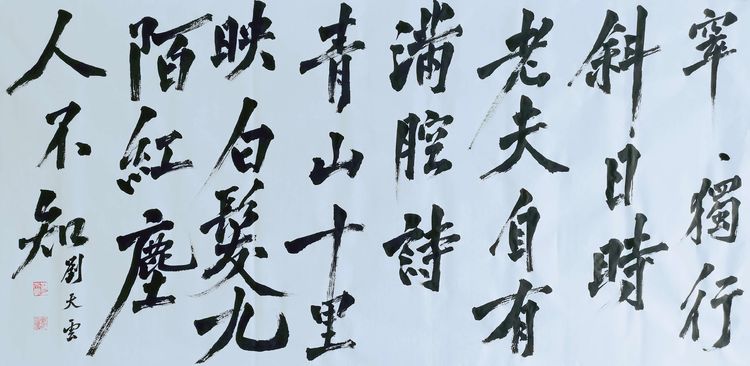 窣、獨行
斜日時
老夫自有
滿腔詩
青山十里
映白髮九
陌紅塵
人不知
劉天雲